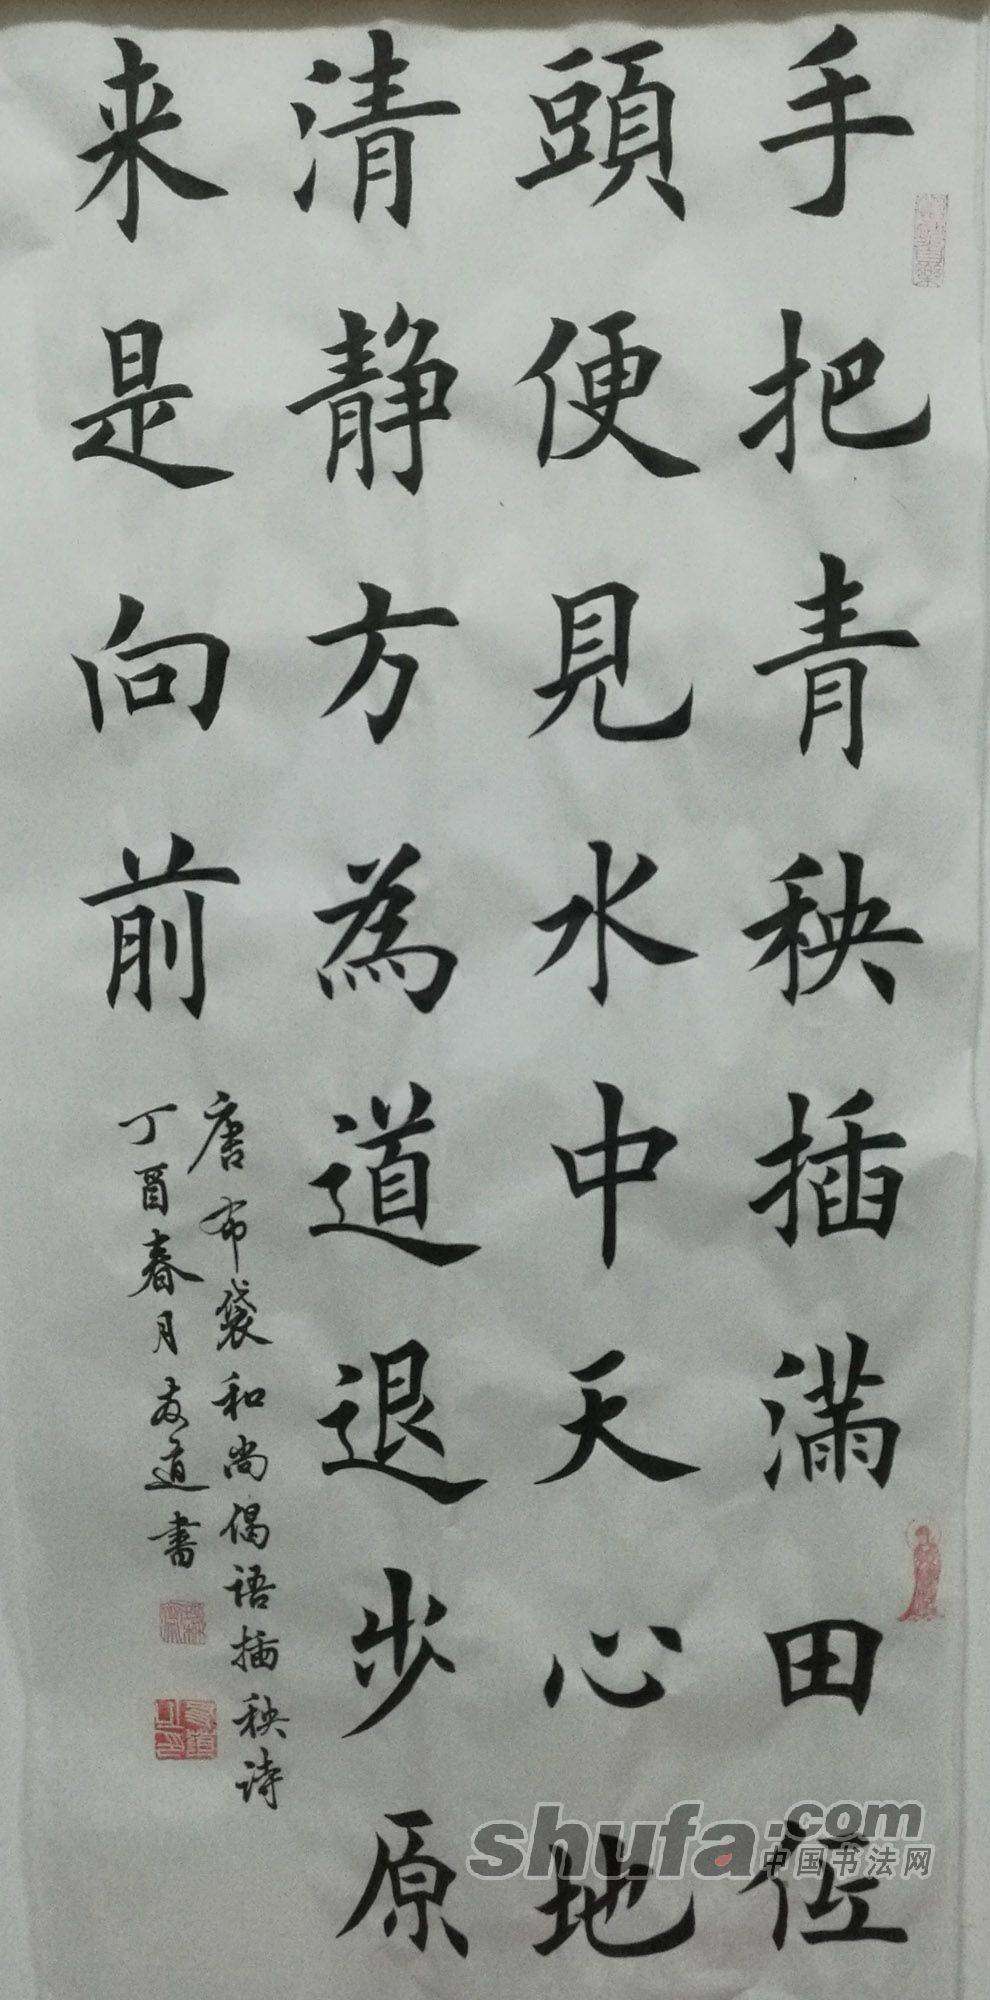 手把青秧插滿田低
頭便見水中天心地
清静方為道退步原
来是向前
唐布袋和尚偈语插秧诗
丁酉春月友道書
shufa.com
中国书法网